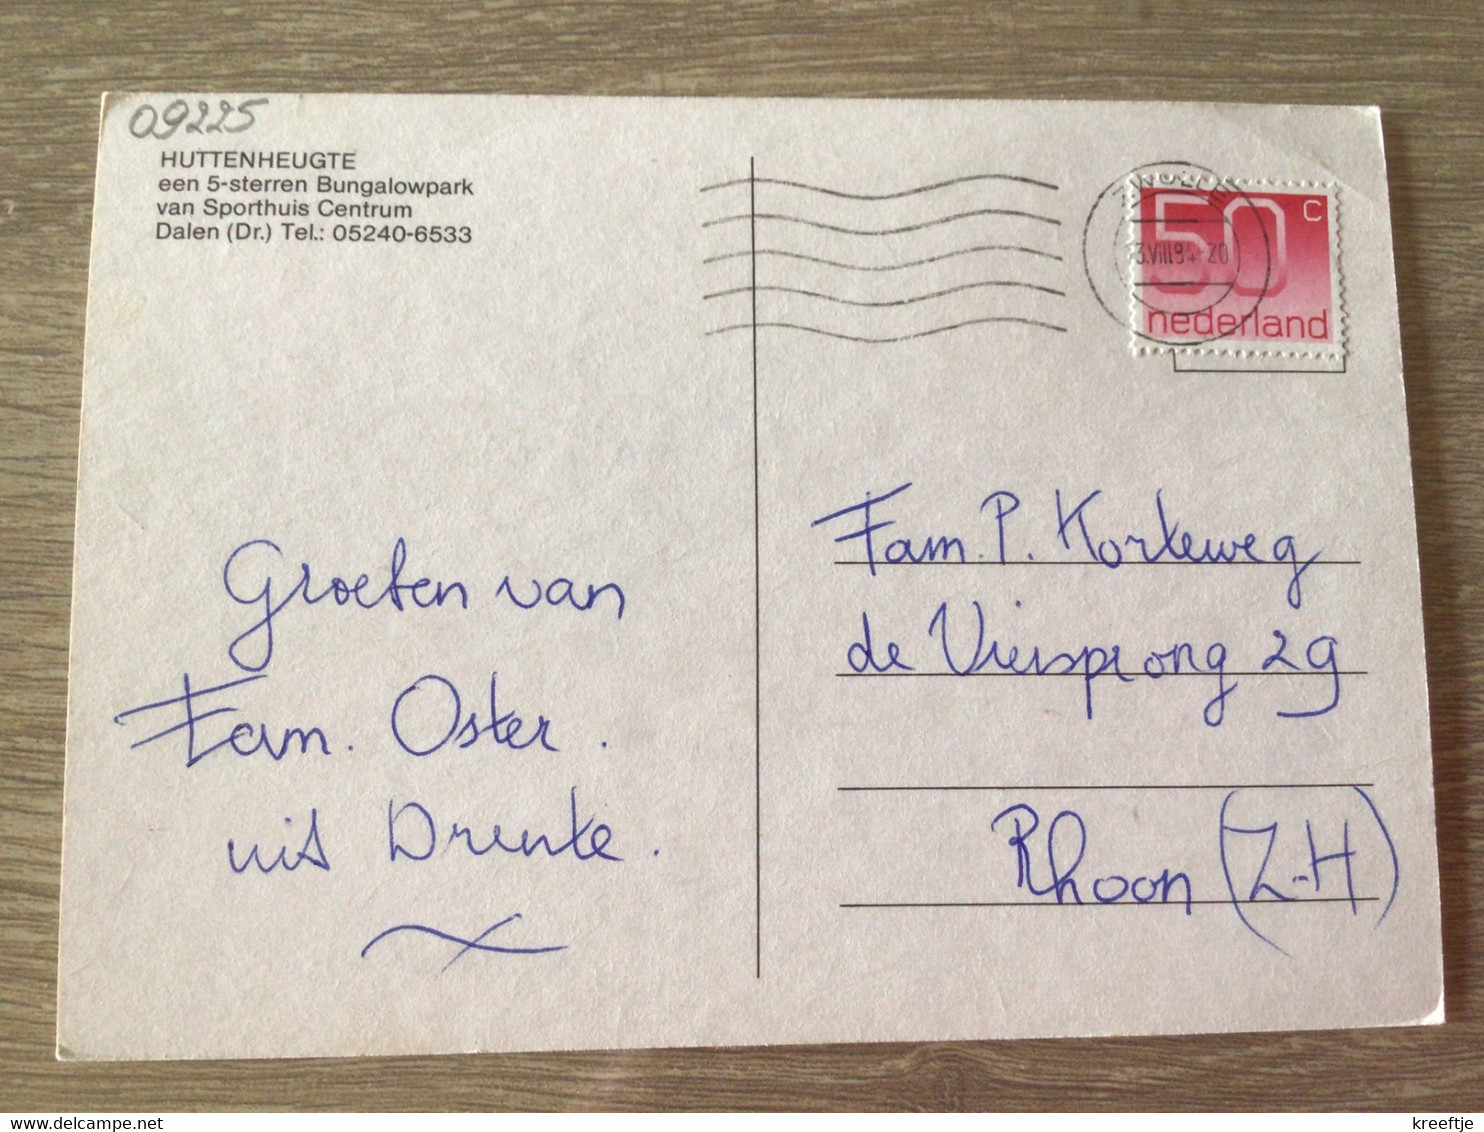 09225
HUTTENHEUGTE
een 5-sterren Bungalowpark
van Sporthuis Centrum
Dalen (Dr.) Tel.: 05240-6533
ZWOLLE
3.VIII.94-20
50 c
nederland
Groeten van
Fam. Oster.
uit Drente.
Fam. P. Korteweg
de Viersprong 29
Rhoon (Z-H)
© delcampe.net
kreeftje